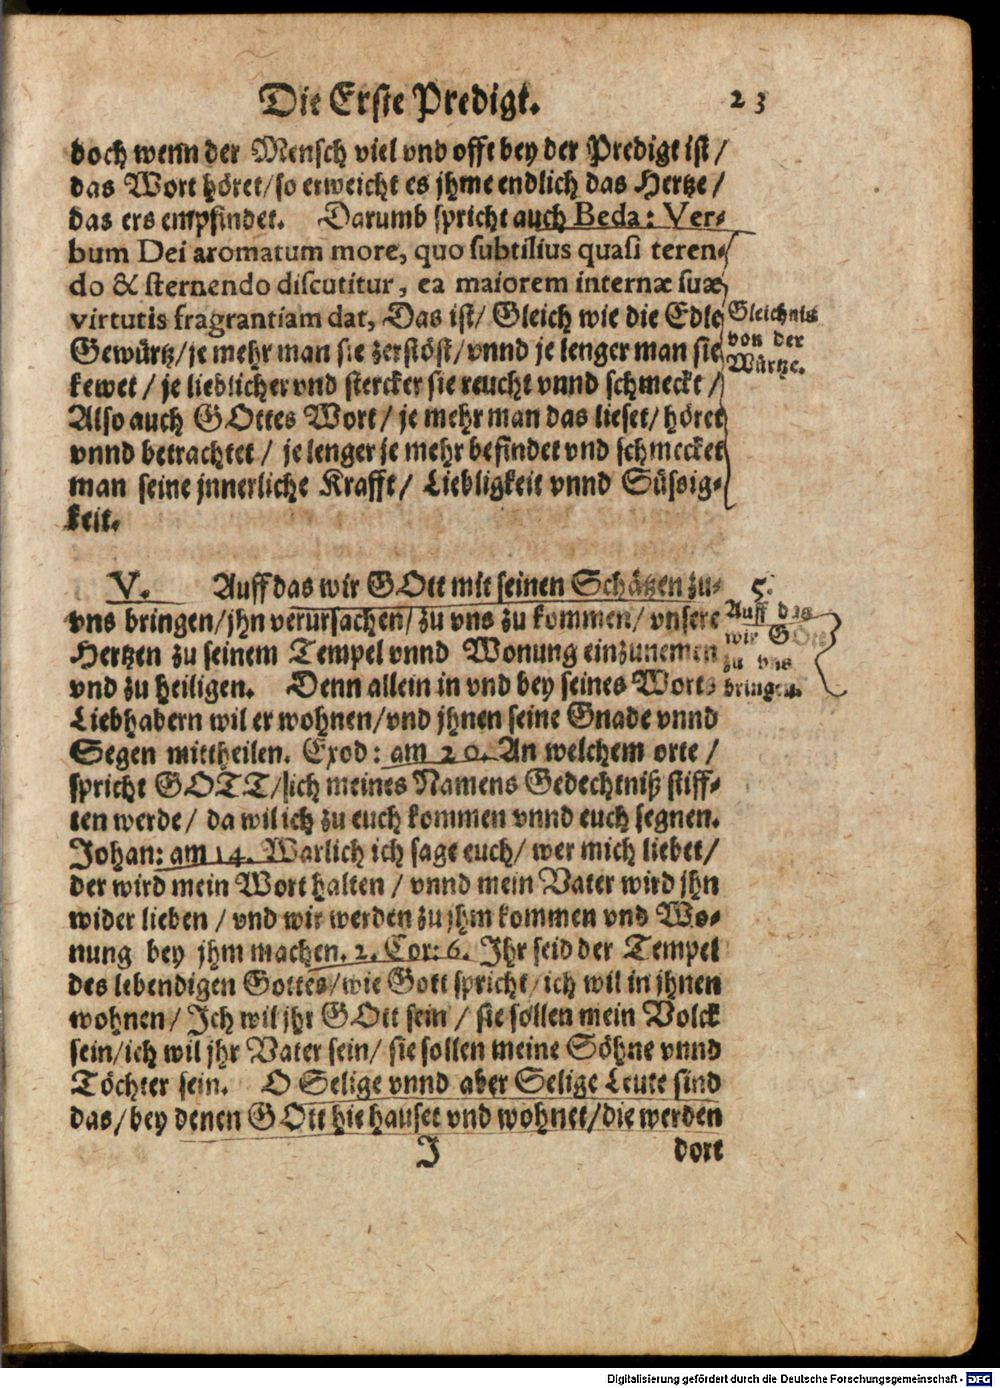 Die Erste Predigt. 23
doch wenn der Mensch viel vnd offt bey der Predigt ist /
das Wort höret/so erweicht es jhme endlich das Hertze /
das ers empfindet. Darumb spricht auch Beda: Ver-
bum Dei aromatum more, quo subtilius quasi teren-
do & sternendo discutitur, ea maiorem internæ suæ
virtutis fragrantiam dat, Das ist/ Gleich wie die Edle
Gewürtz/je mehr man sie zerstöst/vnnd je lenger man sie
kewet / je lieblicher vnd stercker sie reucht vnnd schmeckt /
Also auch GOttes Wort / je mehr man das lieset/ höret
vnnd betrachtet / je lenger je mehr befindet vnd schmecket
man seine jnnerliche Krafft/ Liebligkeit vnnd Süssig-
keit.
Gleichnis
von der
Würtze.
V. Auff das wir GOtt mit seinen Schätzen zu-
vns bringen/jhn verursachen/ zu vns zu kommen/ vnsere
Hertzen zu seinem Tempel vnnd Wonung einzunemen
vnd zu heiligen. Denn allein in vnd bey seines Worts
Liebhabern wil er wohnen/vnd jhnen seine Gnade vnnd
Segen mittheilen. Exod: am 20. An welchem orte /
spricht GOTT/sich meines Namens Gedechtniß stiff-
ten werde/ da wil ich zu euch kommen vnnd euch segnen.
Johan: am 14. Warlich ich sage euch/ wer mich liebet/
der wird mein Wort halten / vnnd mein Vater wird jhn
wider lieben / vnd wir werden zu jhm kommen vnd Wo-
nung bey jhm machen. 2. Cor: 6. Ihr seid der Tempel
des lebendigen Gottes/wie Gott spricht/ich wil in jhnen
wohnen/ Ich wil jhr GOtt sein / sie sollen mein Volck
sein/ich wil jhr Vater sein/ sie sollen meine Söhne vnnd
Töchter sein. O Selige vnnd aber Selige Leute sind
das/bey denen GOtt hie hauset vnd wohnet/die werden
5.
Auff das
wir GOtt
zu vns
bringen.
J dort
Digitalisierung gefördert durch die Deutsche Forschungsgemeinschaft - DFG